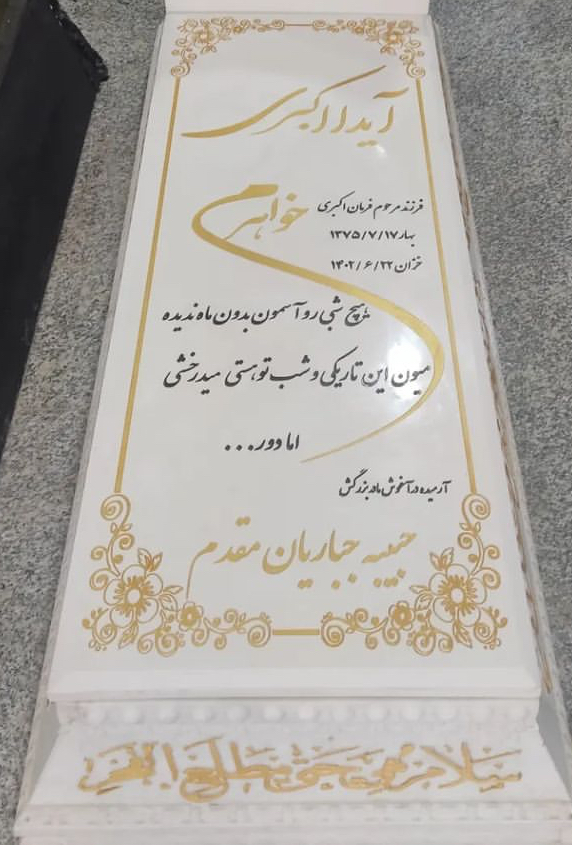 آیدا اکبری
خواهرم
فرزند مرحوم قربان اکبری
بهار ۱۳۷۵/۷/۱۷
خزان ۱۴۰۲/۶/۲۲
هیچ شبی رو آسمون بدون ماه ندیده
میون این تاریکی و شب تو هستی میدرخشی
اما دور...
آرمیده در آغوش مادربزرگش
حبیبه جباریان مقدم
سلام هی حتی مطلع الفجر